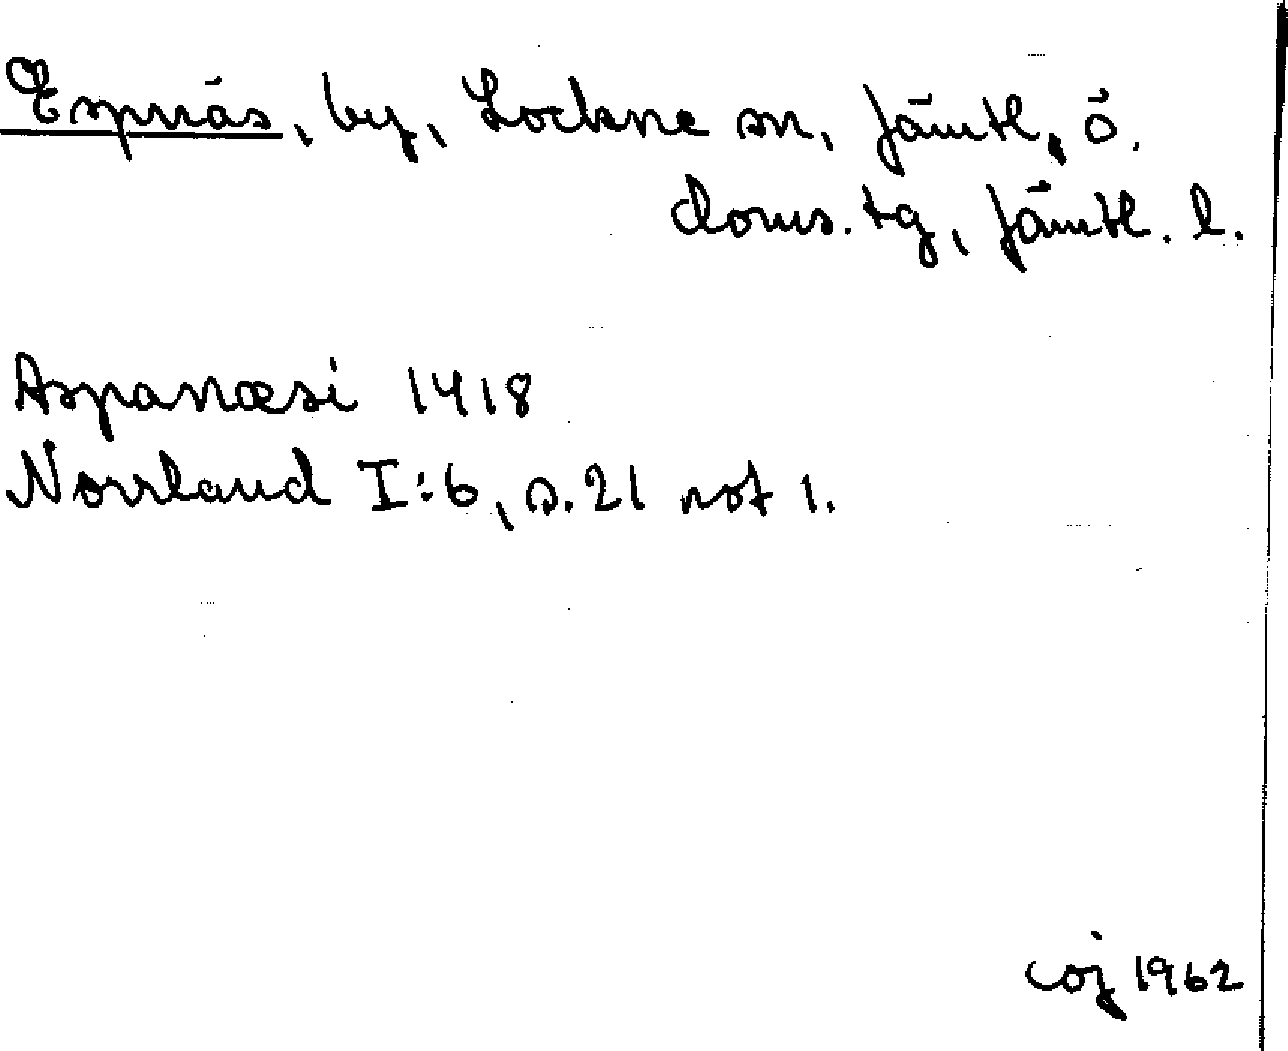 Espnäs, by, Lockne sn, Jämtl, ö.
doms. tg, Jämtl. l.
Aspanæsi 1418
Norrland I:6, s. 21 not 1.
coj 1962